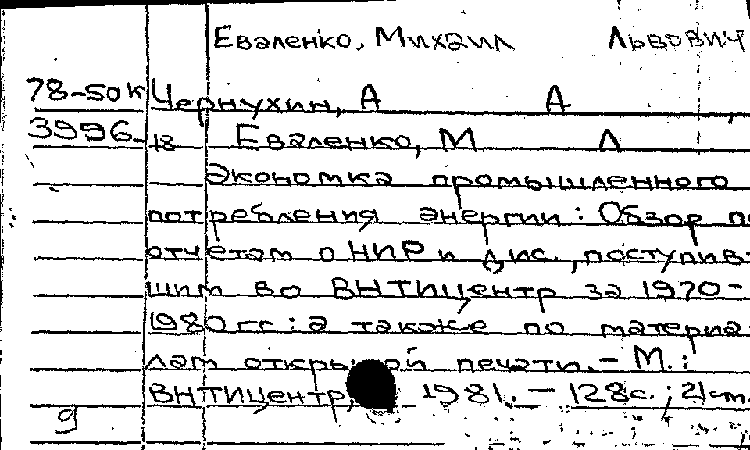 Еваленко, Михаил Львович
78-50к Чернухин, А А
3996 18 Еваленко, М Л
Экономка промышленного
потребления энергии: Обзор по
отчетам о НИР и дис., поступив-
шим во ВНТИцентр за 1970-
1980гг: а также по материа-
лам открытой печати. – М.:
ВНТИцентр, 1981. – 128с.; 21см.
9